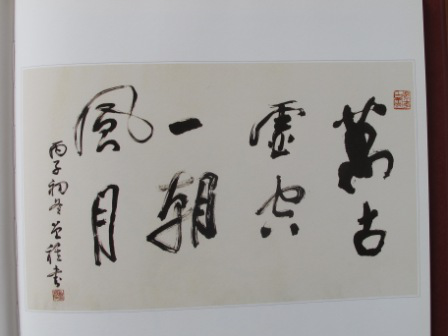 萬古
虛空
一朝
風月
丙子初冬